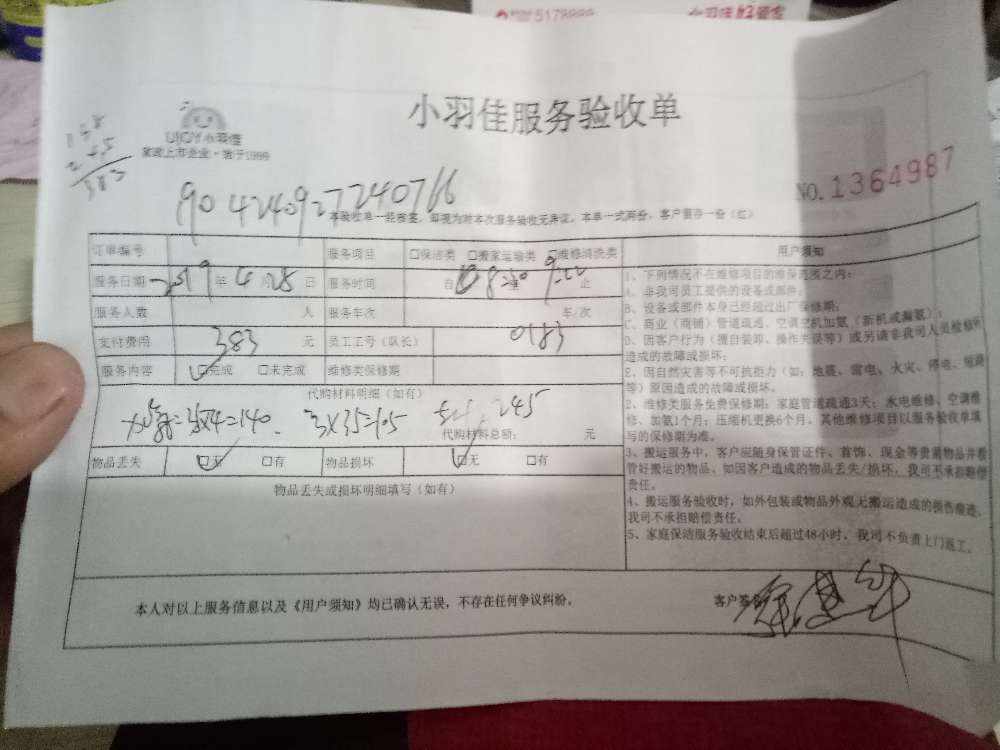 5178899
小羽佳服务验收单
UJOY小羽佳
家政上市企业·始于1999
138
245
383
NO.1364987
904240927240766
本验收单一经签署，即视为对本次服务验收无异议。本单一式两份，客户留存一份（红）
订单编号 服务项目 □保洁类 □搬家运输类 □维修清洗类 用户须知
服务日期 2019 年 4 月 28 日 服务时间 自 8 至 止
服务人数 人 服务车次 车/次
支付费用 383 元 员工工号（队长） 0183
服务内容 □完成 □未完成 维修类保修期
代购材料明细（如有）
=35×4=140. 3×35=105 245
代购材料总额： 元
物品丢失 □无 □有 物品损坏 □无 □有
物品丢失或损坏明细填写（如有）
1、下列情况不在维修项目的维保范围之内：
A、非我司员工提供的设备或部件；
B、设备或部件本身已经超过出厂保修期；
C、商业（商铺）管道疏通、空调空机加氨（新机或漏氨）；
D、因客户行为（擅自装卸、操作失误等）或另请非我司人员检修所
造成的故障或损坏；
E、因自然灾害等不可抗拒力（如：地震、雷电、火灾、停电、短路
等）原因造成的故障或损坏。
2、维修类服务免费保修期：家庭管道疏通3天；水电维修、空调维
修、加氨1个月；压缩机更换6个月。其他维修项目以服务验收单填
写的保修期为准。
3、搬运服务中，客户应随身保管证件、首饰、现金等贵重物品并看
管好搬运的物品。如因客户造成的物品丢失/损坏，我司不承担赔偿
责任。
4、搬运服务验收时，如外包装或物品外观无搬运造成的损伤痕迹，
我司不承担赔偿责任。
5、家庭保洁服务验收结束后超过48小时，我司不负责上门返工。
本人对以上服务信息以及《用户须知》均已确认无误，不存在任何争议纠纷。 客户签名